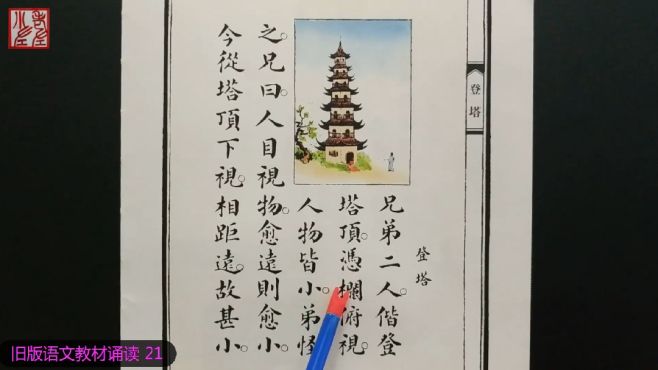 登塔
登塔
兄弟二人。偕登
塔頂。憑欄俯視。
人物皆小。弟怪
之。兄曰。人目視物。愈遠則愈小。
今從塔頂下視。相距遠。故甚小。
旧版语文教材诵读 21